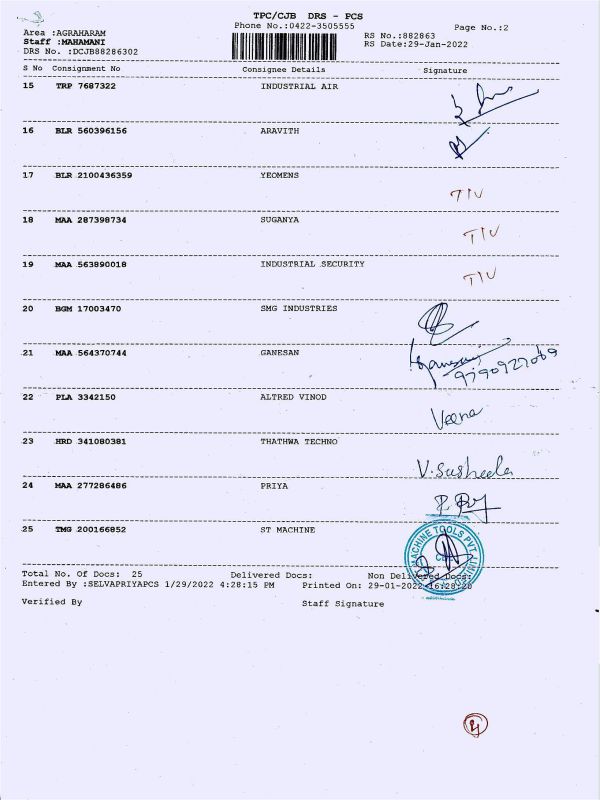 TPC/CJB DRS - PCS
Phone No.:0422-3505555
Page No.:2
Area :AGRAHARAM
Staff :MAHAMANI
DRS No. :DCJB88286302
RS No.:882863
RS Date:29-Jan-2022
S No Consignment No Consignee Details Signature
15 TRP 7687322 INDUSTRIAL AIR
16 BLR 560396156 ARAVITH
17 BLR 2100436359 YEOMENS
TIV
18 MAA 287398734 SUGANYA
TIV
19 MAA 563890018 INDUSTRIAL SECURITY
TIV
20 BGM 17003470 SMG INDUSTRIES
21 MAA 564370744 GANESAN
9790927069
22 PLA 3342150 ALTRED VINOD
Veena
23 HRD 341080381 THATHWA TECHNO
V. Susheela
24 MAA 277286486 PRIYA
25 TMG 200166852 ST MACHINE
MACHINE TOOLS PVT. LIMITED
Total No. Of Docs: 25 Delivered Docs: Non Delivered Docs:
Entered By :SELVAPRIYAPCS 1/29/2022 4:28:15 PM Printed On: 29-01-2022 16:28:20
Verified By Staff Signature